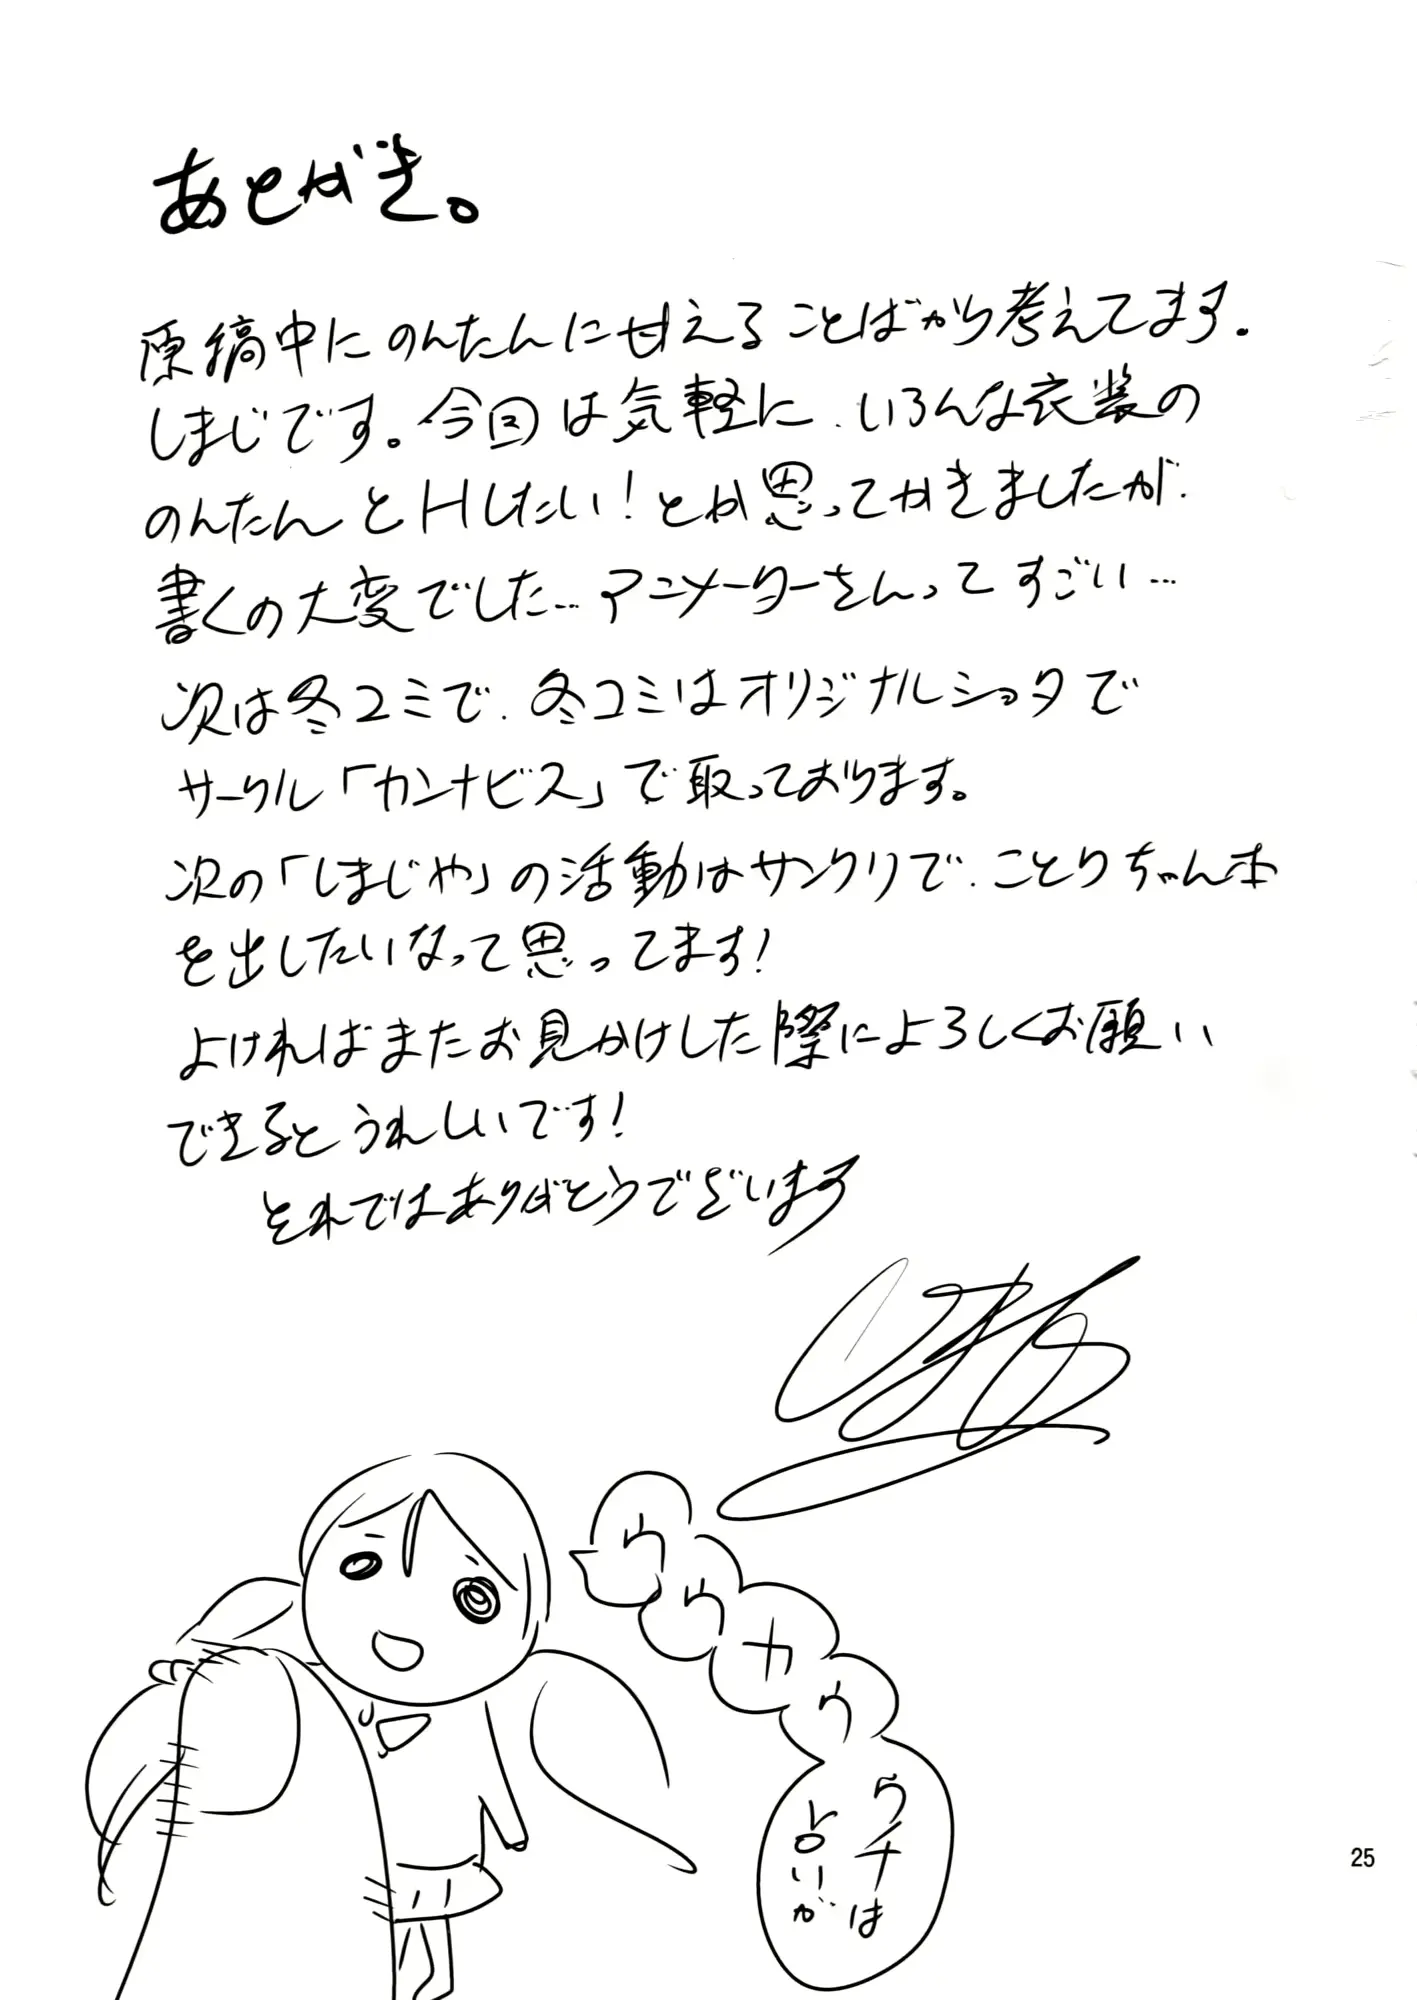 あとがき。
原稿中にのんたんに甘えることばかり考えてます。
しまじです。今回は気軽に、いろんな衣装の
のんたんとHしたい!とか思ってかきましたが、
書くの大変でした…アニメーターさんってすごい…
次は冬コミで、冬コミはオリジナルショタで
サークル「カンナビス」で取っております。
次の「しまじや」の活動はサンクリで、ことりちゃん本
を出したいなって思ってます!
よければまたお見かけした際によろしくお願い
できるとうれしいです!
それではありがとうございます
ウ
ウ
カ
ウ
ウチは
トロいが
25